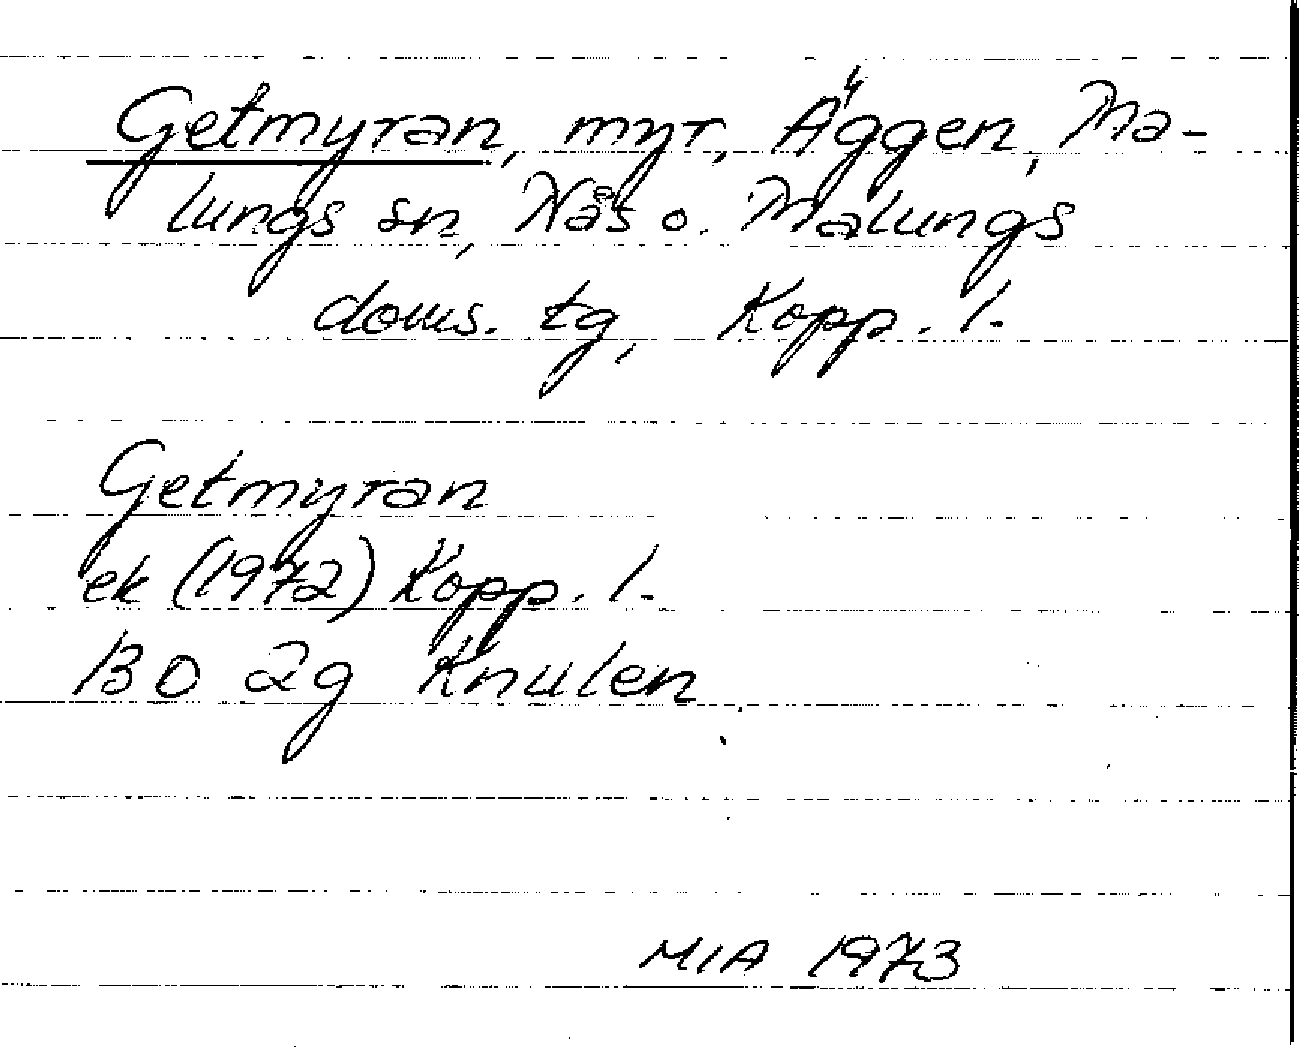 Getmyran, myr, Äggen, Ma-
lungs sn, Nås o. Malungs
doms. tg, Kopp. l.
Getmyran
ek (1972) Kopp. l.
13 D 2g Knulen
MIA 1973